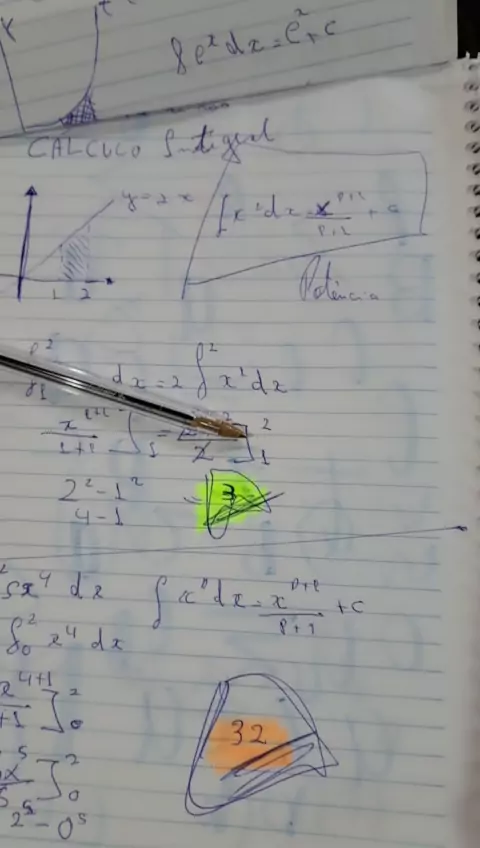 ∫e^x dx = e^x + c
CALCULO Integral
y=2x
∫x^p dx = x^(p+1)/(p+1) + c
1 2
Potência
dx = 2 ∫^2 x^1 dx
x^(1+1)/(1+1) ]_1 = ]_1^2
2^2-1^2 = 3
4-1
5x^4 dx ∫x^p dx = x^(p+1)/(p+1) + c
∫_0^2 x^4 dx
x^(4+1)/+1 ]_0^2
32
x^5/5 ]_0^2
2^5-0^5